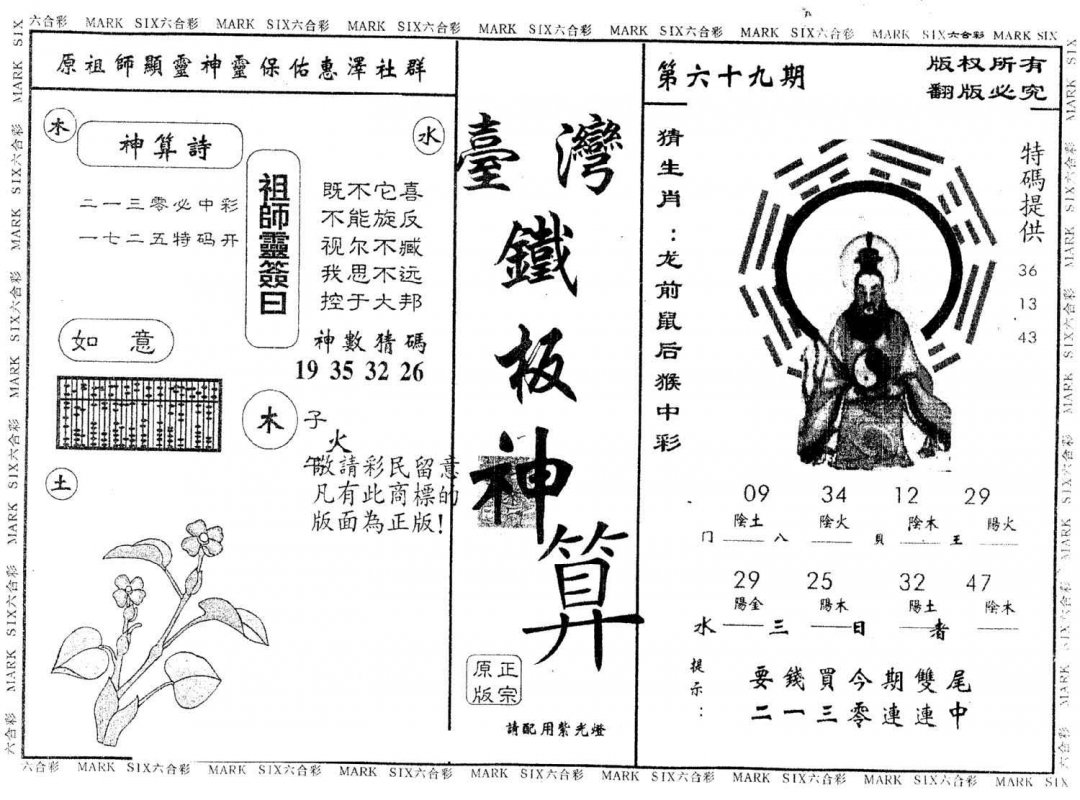 六合彩 MARK SIX六合彩 MARK SIX六合彩 MARK SIX六合彩 MARK SIX六合彩 MARK SIX六合彩 MARK SIX六合彩 MARK SIX六合彩 MARK SIX
原祖師顯靈神靈保佑惠澤社群
木
神算詩
水
二一三零必中彩
一七二五特码开
祖師靈簽曰
既不它喜
不能旋反
视尔不臧
我思不远
控于大邦
神數猜碼
19 35 32 26
如意
木
子
火
午
敬請彩民留意
凡有此商標的
版面為正版!
土
臺灣
鐵
板
神
算
正宗
原版
請配用紫光燈
第六十九期
版权所有
翻版必究
猜生肖:龙前鼠后猴中彩
特碼提供
36
13
43
09 34 12 29
陰土 陰火 陰木 陽火
门 八 貝 王
29 25 32 47
陽金 陽木 陽土 陰木
水 三 日 者
提示:
要錢買今期雙尾
二一三零連連中
六合彩 MARK SIX六合彩 MARK SIX六合彩 MARK SIX六合彩 MARK SIX六合彩 MARK SIX六合彩 MARK SIX六合彩 MARK SIX六合彩 MARK SIX